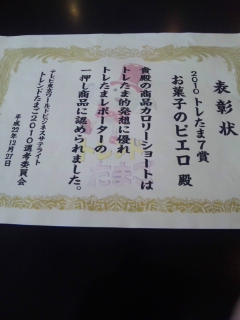 表彰状
2010トレたま7賞
お菓子のピエロ 殿
貴殿の商品カロリーショートは
トレたま的発想に優れ
トレたまレポーターの
一押し商品に認められました。
テレビ東京ワールドビジネスサテライト
トレンドたまご2010選考委員会
平成22年12月27日